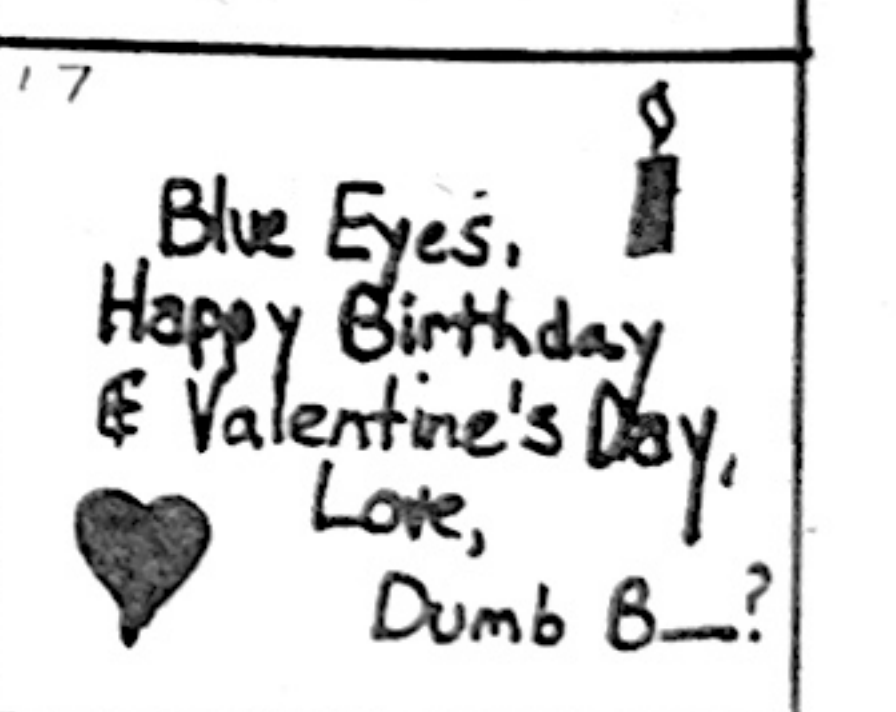 '17
Blue Eyes,
Happy Birthday
& Valentine's Day,
Love,
Dumb B__?